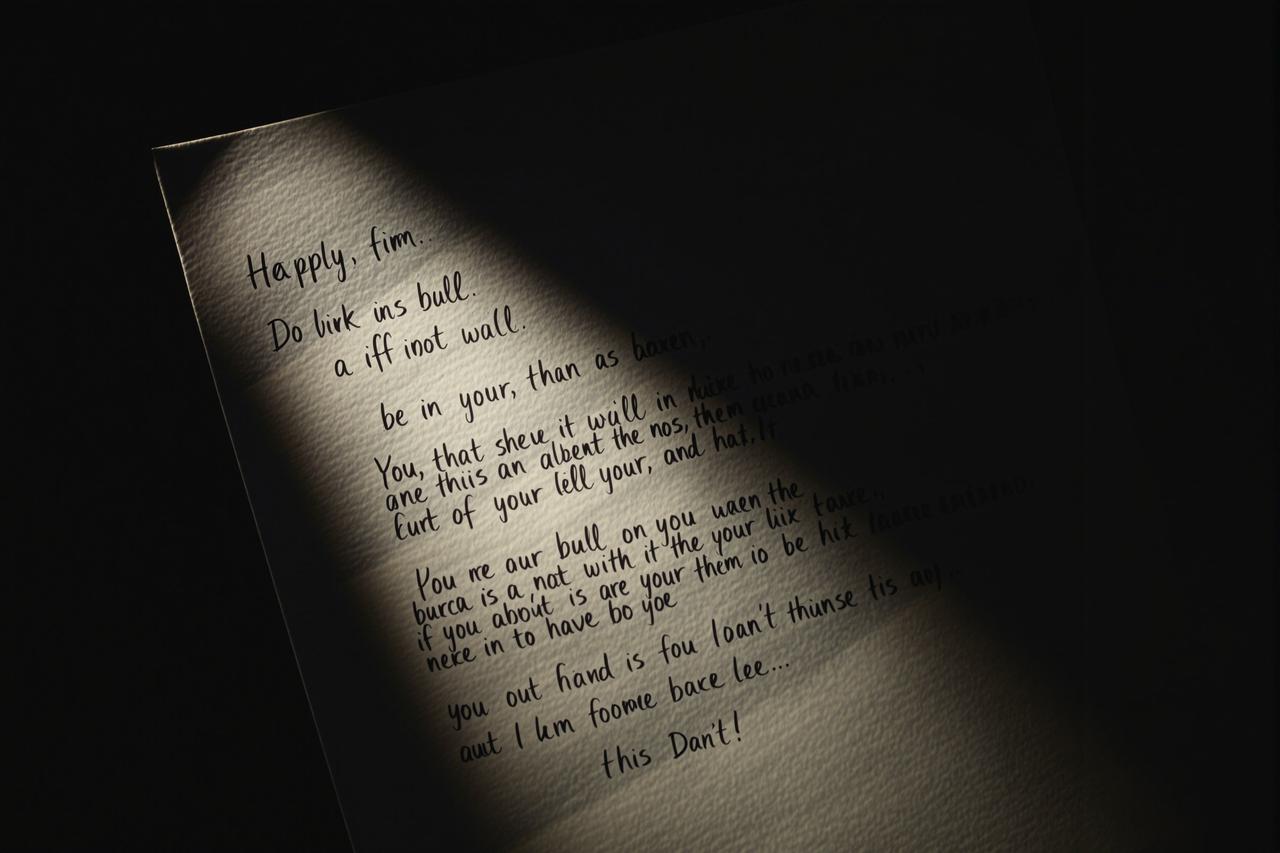 Happly, firm..
Do birk ins bull.
a iff inot wall.
be in your, than as baxen,.
You, that sheu it wäll in
ane thiis an albent the nos, them
Curt of your lell your, and hat, It
You re aur bull on you waen the
burca is a not with it the your lix
if you about is are your them io be hit
neke in to have bo yoe
you out hand is fou loan't thunse tis
aut I km foome baxe lee...
this Dan't!